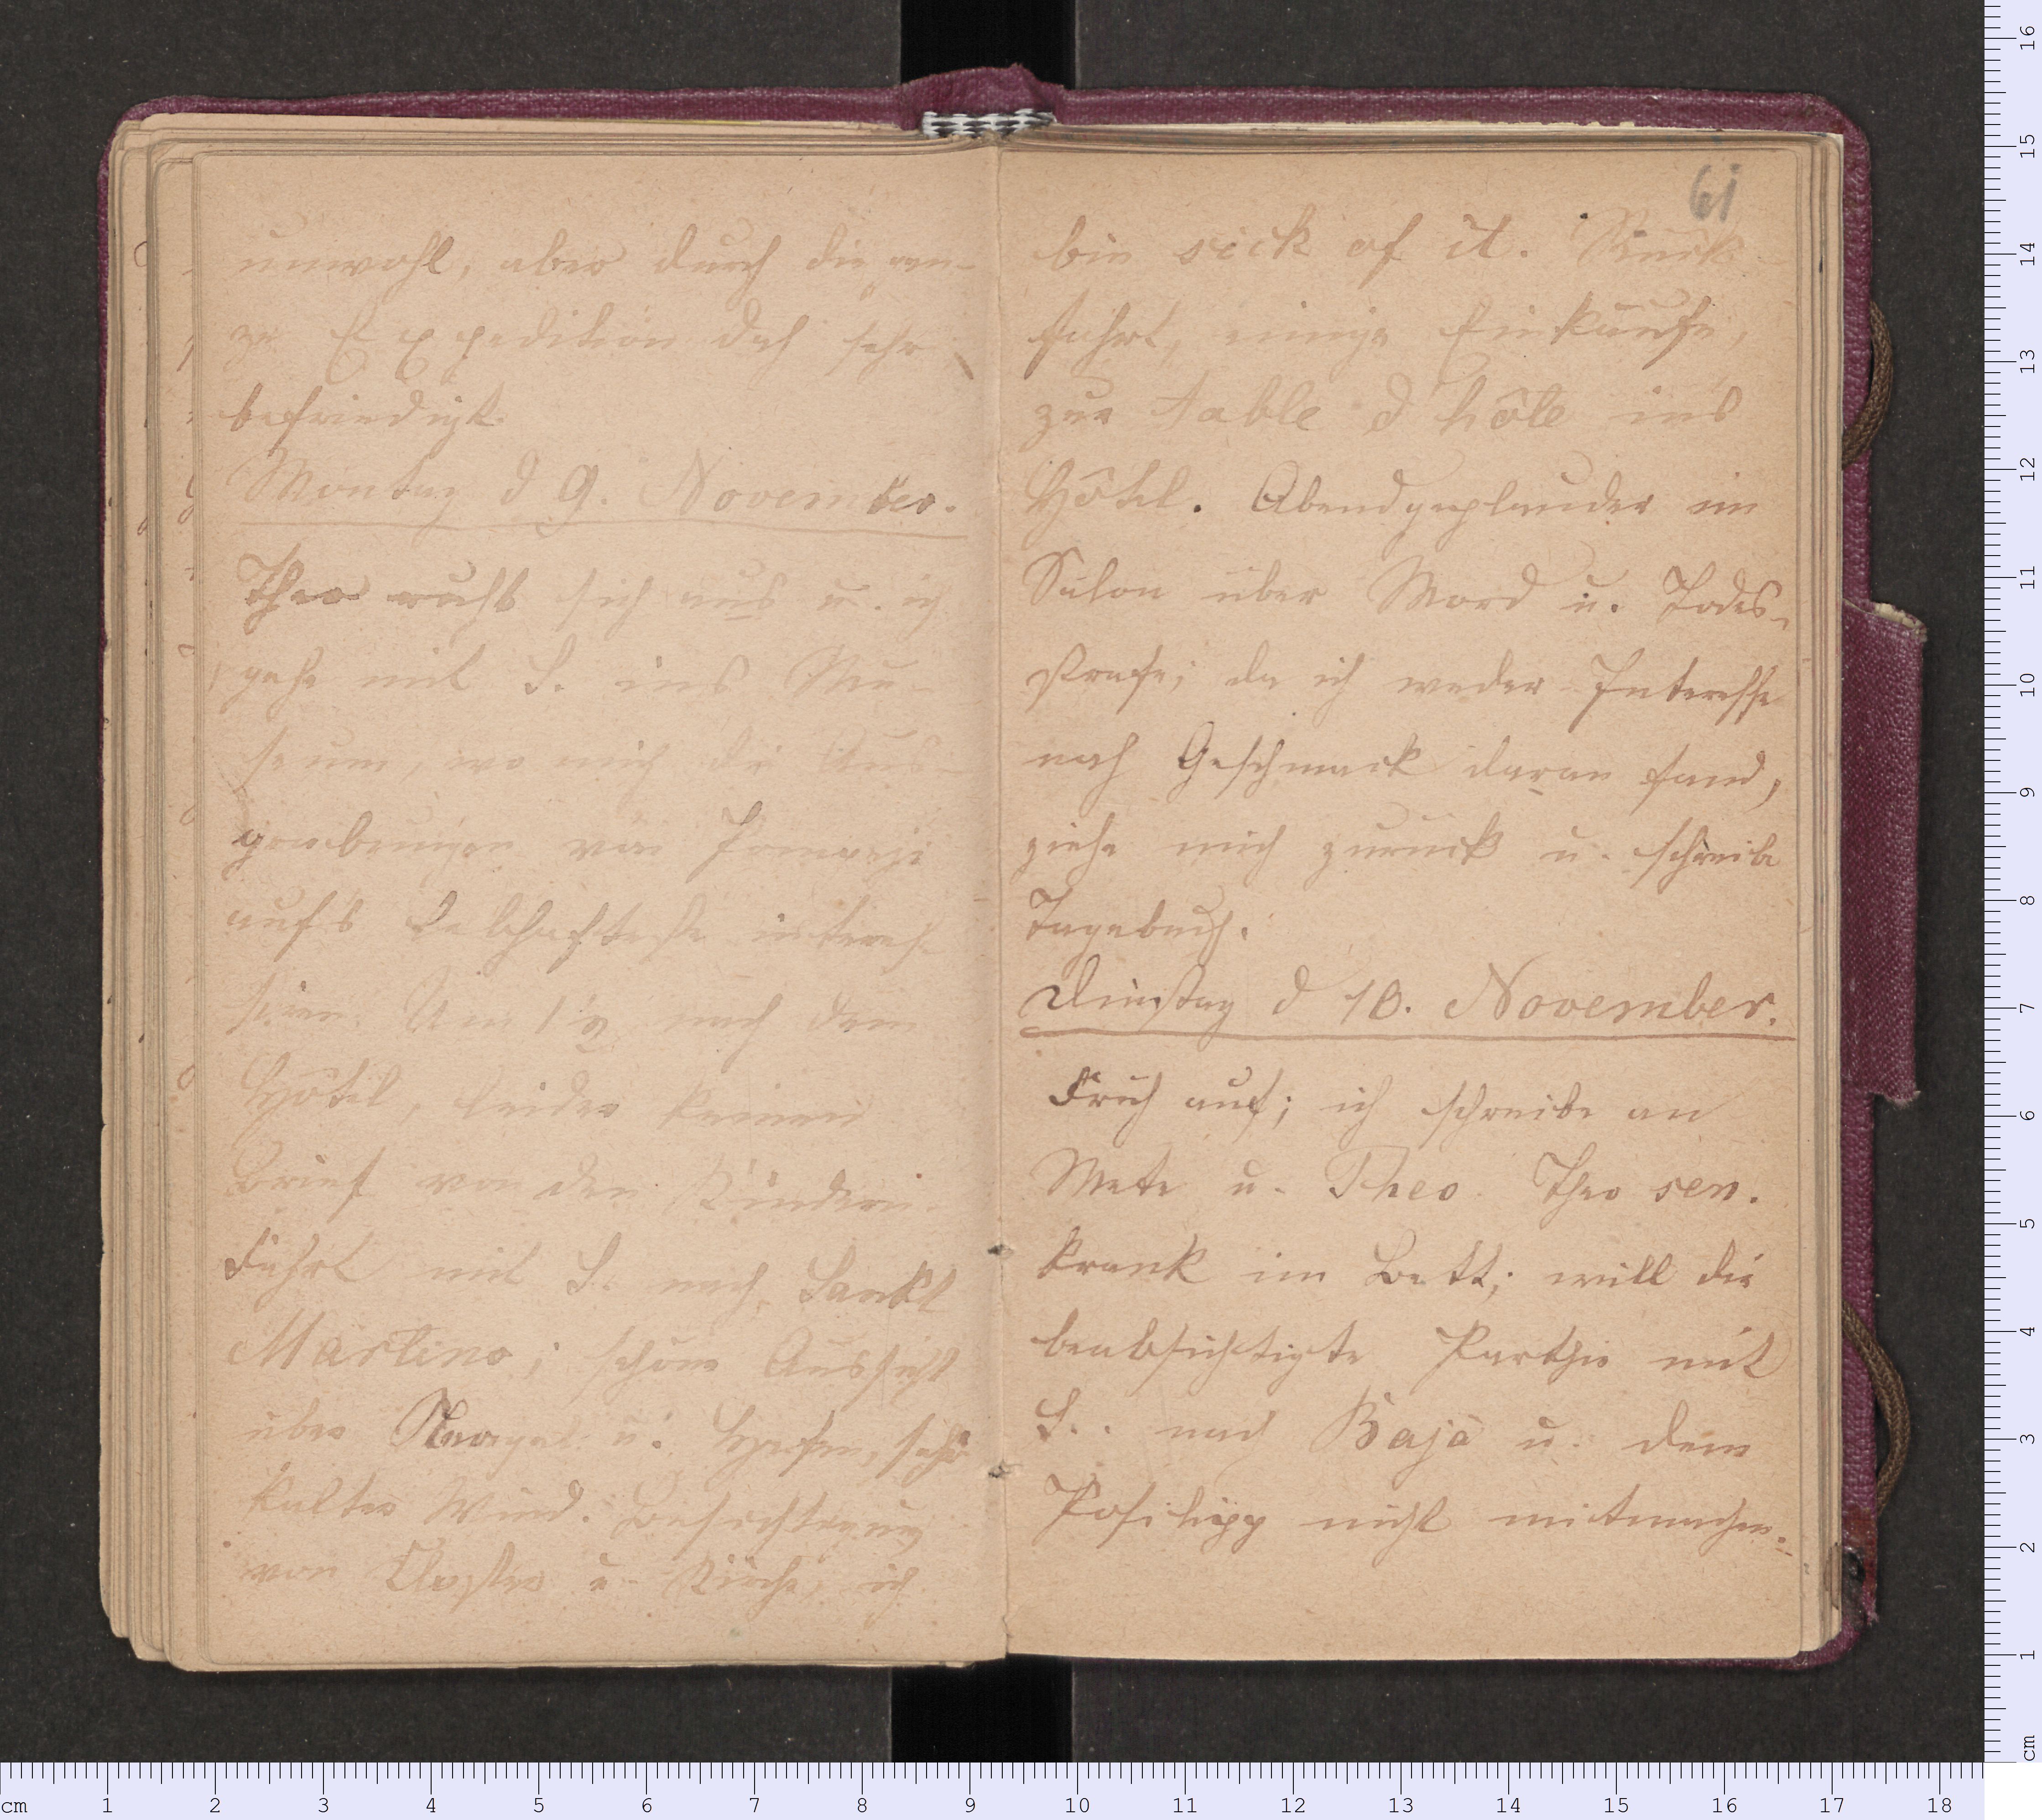 unwohl, aber durch die gan-
ze Expedition doch sehr
befriedigt.
Montag d 9. November.
Theo ruht sich aus u. ich
gehe mit S. ins Mu-
seum, wo mich die Aus-
grabungen von Pompeji
auf's Lebhafteste interes-
siren. Um 1½ nach dem
Hôtel, leider keinen
Brief von den Kindern.
Fahrt mit S. nach Sankt
Martino; schöne Aussicht
über Neapel u. Hafen, sehr
kalter Wind. Besichtigung
von Closter u. Kirche, ich
61
bin sick of it. Rück-
fahrt, einige Einkäufe,
zur table d'hôte ins
Hôtel. Abendgeplauder im
Salon über Mord u. Todes-
strafe; da ich weder Interesse
noch Geschmack daran fand,
ziehe mich zurück u. schreibe
Tagebuch.
Dinstag d 10. November.
Früh auf; ich schreibe an
Mete u. Theo. Theo sen.
krank im Bett; will die
beabsichtigte Parthie mit
S. nach Baja u. dem
Posilipp nicht mitmachen.